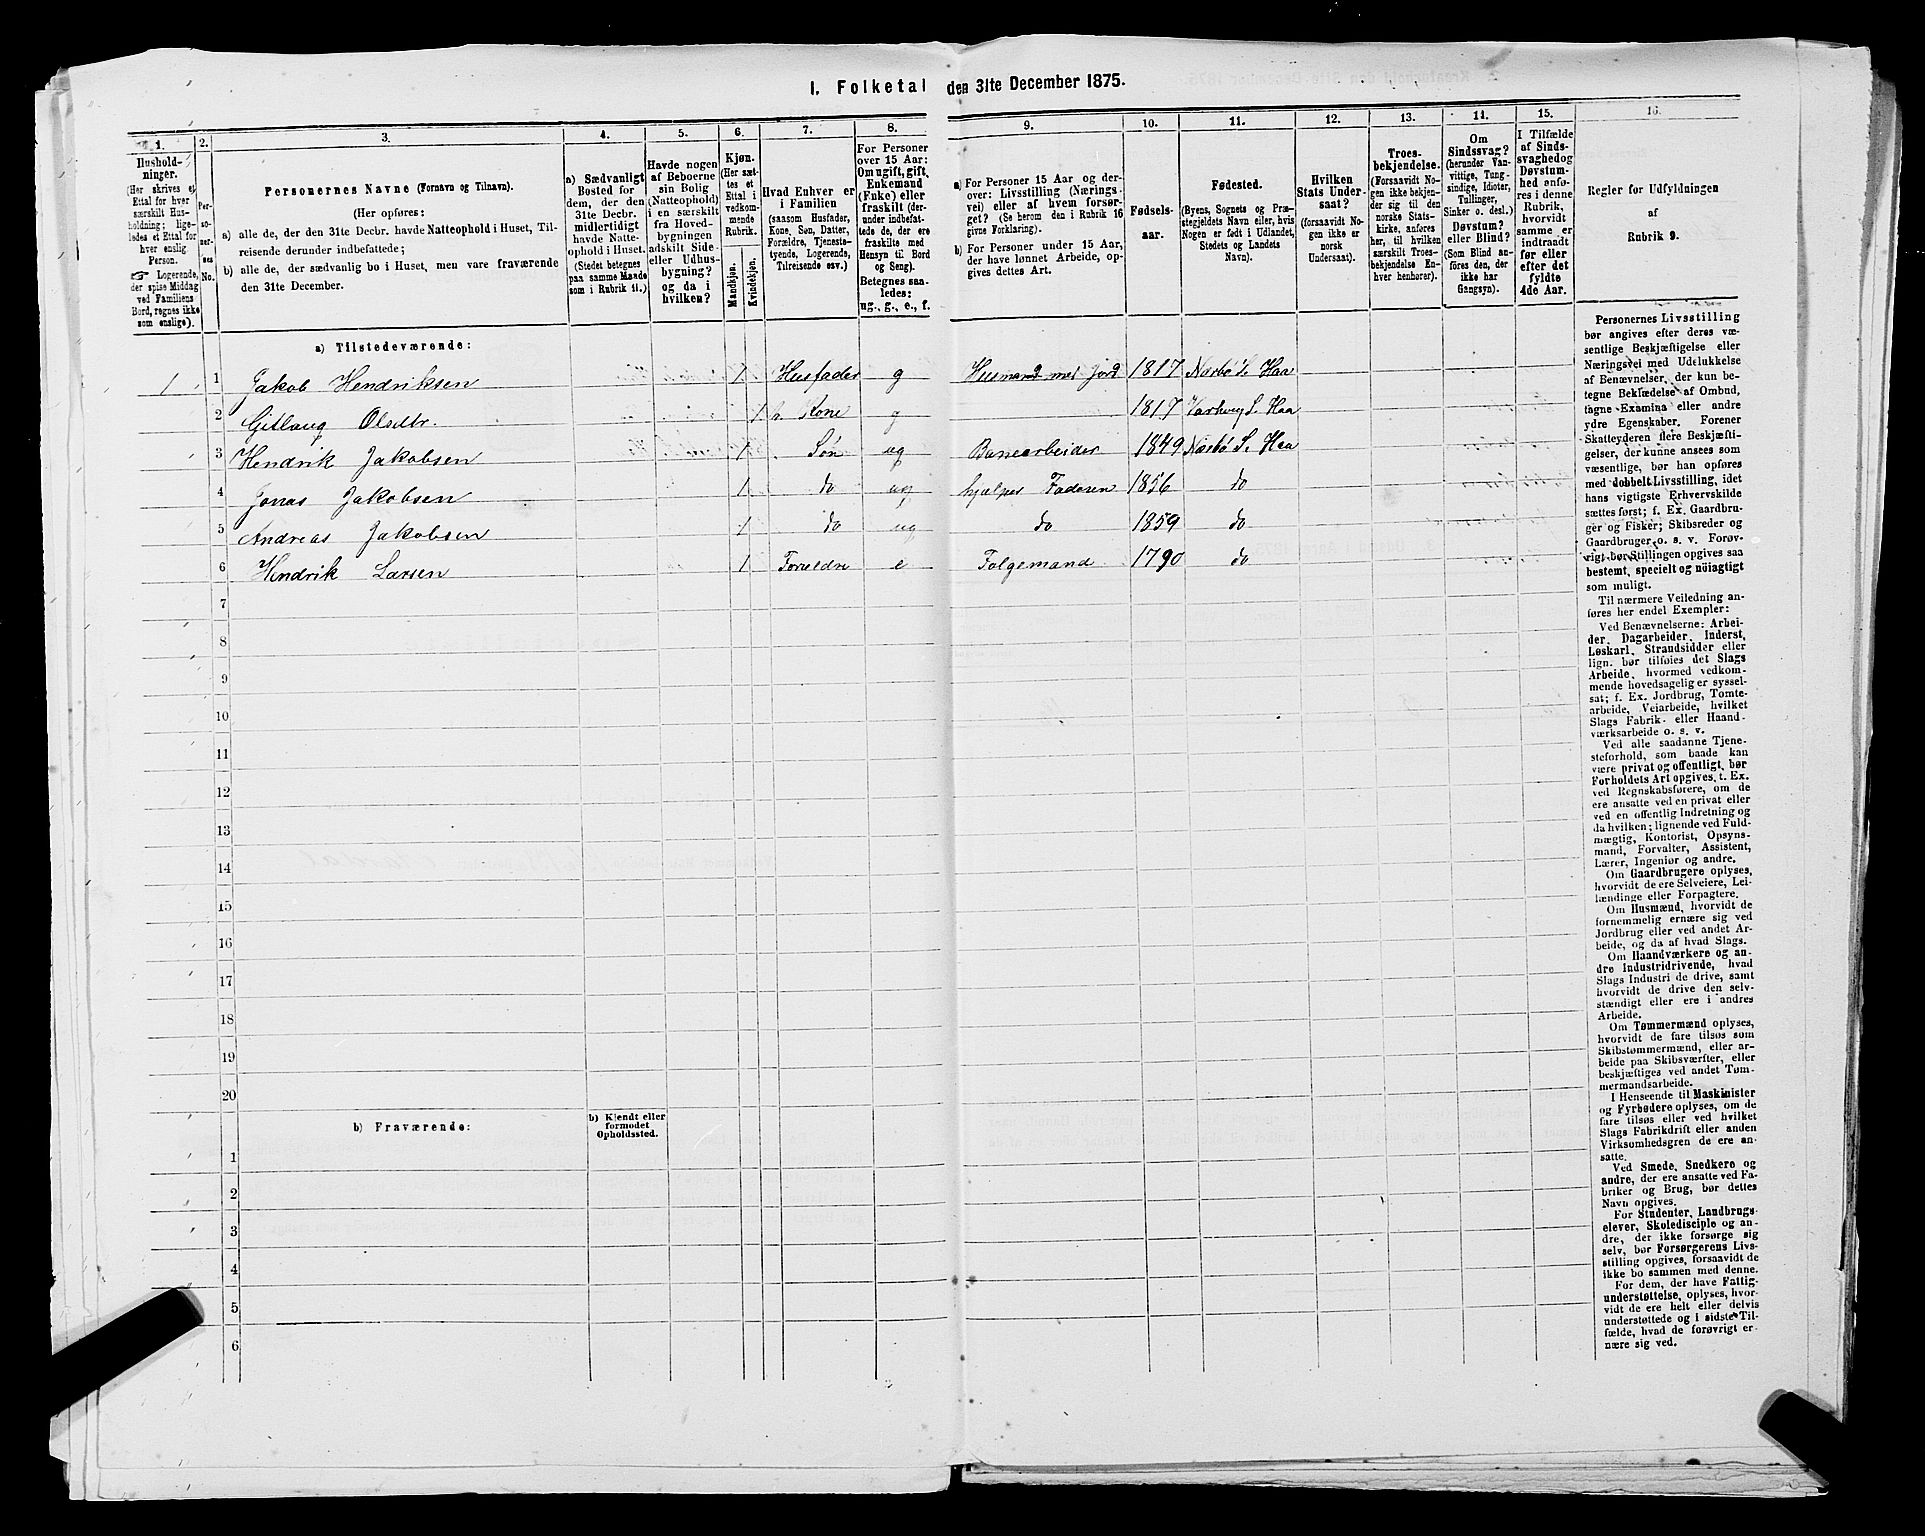 I. Folketal den 31te December 1875.
1.
Hushold-
ninger.
(Her skrives et
Ettal for hver
særskilt Hus-
holdning; lige-
ledes et Ettal for
hver enslig
Person.
☞ Logerende,
der spise Middag
ved Familiens
Bord, regnes ikke
som enslige).
2.
Per-
so-
ner-
nes
No.
3.
Personernes Navne (Fornavn og Tilnavn).
(Her opføres:
a) alle de, der den 31te Decbr. havde Natteophold i Huset, Til-
reisende derunder indbefattede;
b) alle de, der sædvanlig bo i Huset, men vare fraværende
den 31te December.
4.
a) Sædvanligt
Bosted for
dem, der den
31te Decbr.
midlertidigt
havde Natte-
ophold i Huset.
(Stedet betegnes
paa samme Maade
som i Rubrik 11.)
5.
Havde nogen
af Beboerne
sin Bolig
(Natteophold)
i en særskilt
fra Hoved-
bygningen
adskilt Side-
eller Udhus-
bygning?
og da i
hvilken?
6.
Kjøn.
(Her sæt-
tes et
Ettal i
vedkom-
mende
Rubrik.
Mandkjøn.
Kvindekjøn.
7.
Hvad Enhver er
i Familien
(saasom Husfader,
Kone, Søn, Datter,
Forældre, Tjeneste-
tyende, Logerende,
Tilreisende osv.)
8.
For Personer
over 15 Aar:
Om ugift, gift,
Enkemand
(Enke) eller
fraskilt (der-
under indbefat-
tede de, der ere
fraskilte med
Hensyn til Bord
og Seng).
Betegnes saa-
ledes:
ug., g., e., f.
9.
a) For Personer 15 Aar og der-
over: Livsstilling (Nærings-
vei) eller af hvem forsør-
get? (Se herom den i Rubrik 16
givne Forklaring).
b) For Personer under 15 Aar,
der have lønnet Arbeide, op-
gives dettes Art.
10.
Fødsels-
aar.
11.
Fødested.
(Byens, Sognets og Præ-
stegjeldets Navn eller, hvis
Nogen er født i Udlandet,
Stedets og Landets
Navn).
12.
Hvilken
Stats Under-
saat?
(forsaavidt No-
gen ikke er
norsk
Undersaat).
13.
Troes-
bekjendelse.
(Forsaavidt No-
gen ikke bekjen-
der sig til den
norske Stats-
kirke, anføres
her, til hvilken
særskilt Troes-
bekjendelse En-
hver henhører).
14.
Om
Sindssvag?
(herunder Van-
vittige, Tung-
sindige, Idioter,
Tullinger,
Sinker o. desl.)
Døvstum?
eller Blind?
(Som Blind an-
føres den, der
ikke har
Gangsyn).
15.
I Tilfælde
af Sinds-
svaghed og
Døvstum-
hed anfø-
res i denne
Rubrik,
hvorvidt
samme er
indtraadt
før eller
efter det
fyldte
4de Aar.
16.
Regler for Udfyldningen
af
Rubrik 9.
a) Tilstedeværende:
1 1 Jakob Hendriksen 1 Husfader g Husmand med Jord 1817 Narbö S. Haa
2 Gitlaug Olsdtr. 1 h. Kone g 1817 Varhoug S. Haa
3 Hendrik Jakobsen 1 Søn ug Banearbeider 1849 Narbö S. Haa
4 Jonas Jakobsen 1 do ug hjælper Faderen 1856 do
5 Andreas Jakobsen 1 do ug do 1859 do
6 Hendrik Larsen 1 Forældre e Folgemand 1790 do
7
8
9
10
11
12
13
14
15
16
17
18
19
20
b) Fraværende:
b) Kjendt eller
formodet
Opholdssted.
1
2
3
4
5
6
Personernes Livsstilling
bør angives efter deres væ-
sentlige Beskjæftigelse eller
Næringsvei med Udelukkelse
af Benævnelser, der kun be-
tegne Beklædelse af Ombud,
tagne Examina eller andre
ydre Egenskaber. Forener
Skatteyderen flere Beskjæfti-
gelser, der kunne ansees som
væsentlige, bør han opføres
med dobbelt Livsstilling, idet
hans vigtigste Erhvervskilde
sættes først; f. Ex. Gaardbru-
ger og Fisker; Skibsreder og
Gaardbruger o. s. v. Forøv-
rigt bør Stillingen opgives saa
bestemt, specielt og nöiagtigt
som muligt.
Til nærmere Veiledning an-
føres her endel Exempler:
Ved Benævnelserne: Arbei-
der, Dagarbeider, Inderst,
Løskarl, Strandsidder eller
lign. bør tilføies det Slags
Arbeide, hvormed vedkom-
mende hovedsagelig er syssel-
sat; f. Ex. Jordbrug, Tomte-
arbeide, Veiarbeide, hvilket
Slags Fabrik- eller Haand-
værksarbeide o. s. v.
Ved alle saadanne Tjene-
steforhold, som baade kan
være privat og offentligt, bør
Forholdets Art opgives, t. Ex.
ved Regnskabsførere, om de
ere ansatte ved en privat eller
ved en offentlig Indretning og
da hvilken; lignende ved Fuld-
mægtig, Kontorist, Opsyns-
mand, Forvalter, Assistent,
Lærer, Ingeniør og andre.
Om Gaardbrugere oplyses,
hvorvidt de ere Selveiere, Lei-
lændinge eller Forpagtere.
Om Husmænd, hvorvidt de
fornemmelig ernære sig ved
Jordbrug eller ved andet Ar-
beide, og da af hvad Slags.
Om Haandværkere og an-
dre Industridrivende, hvad
Slags Industri de drive, samt
hvorvidt de drive den selv-
stændigt eller ere i andres
Arbeide.
Om Tømmermænd oplyses,
hvorvidt de fare tilsøs som
Skibstømmermænd, eller ar-
beide paa Skibsværfter, eller
beskjæftiges ved andet Tøm-
mermandsarbeide.
I Henseende til Maskinister
og Fyrbødere oplyses, om de
fare tilsøs eller ved hvilket
Slags Fabrikdrift eller anden
Virksomhedsgren de ere an-
satte.
Ved Smede, Snedkere og
andre, der ere ansatte ved Fa-
briker og Brug, bør dettes
Navn opgives.
For Studenter, Landbrugs-
elever, Skoledisciple og an-
dre, der ikke forsørge sig
selv, bør Forsørgerens Livs-
stilling opgives, forsaavidt de
ikke bo sammen med denne.
For dem, der have Fattig-
understøttelse, oplyses, hvor-
vidt de ere helt eller delvis
understøttede og i sidste Til-
fælde, hvad de forøvrigt er-
nære sig ved.